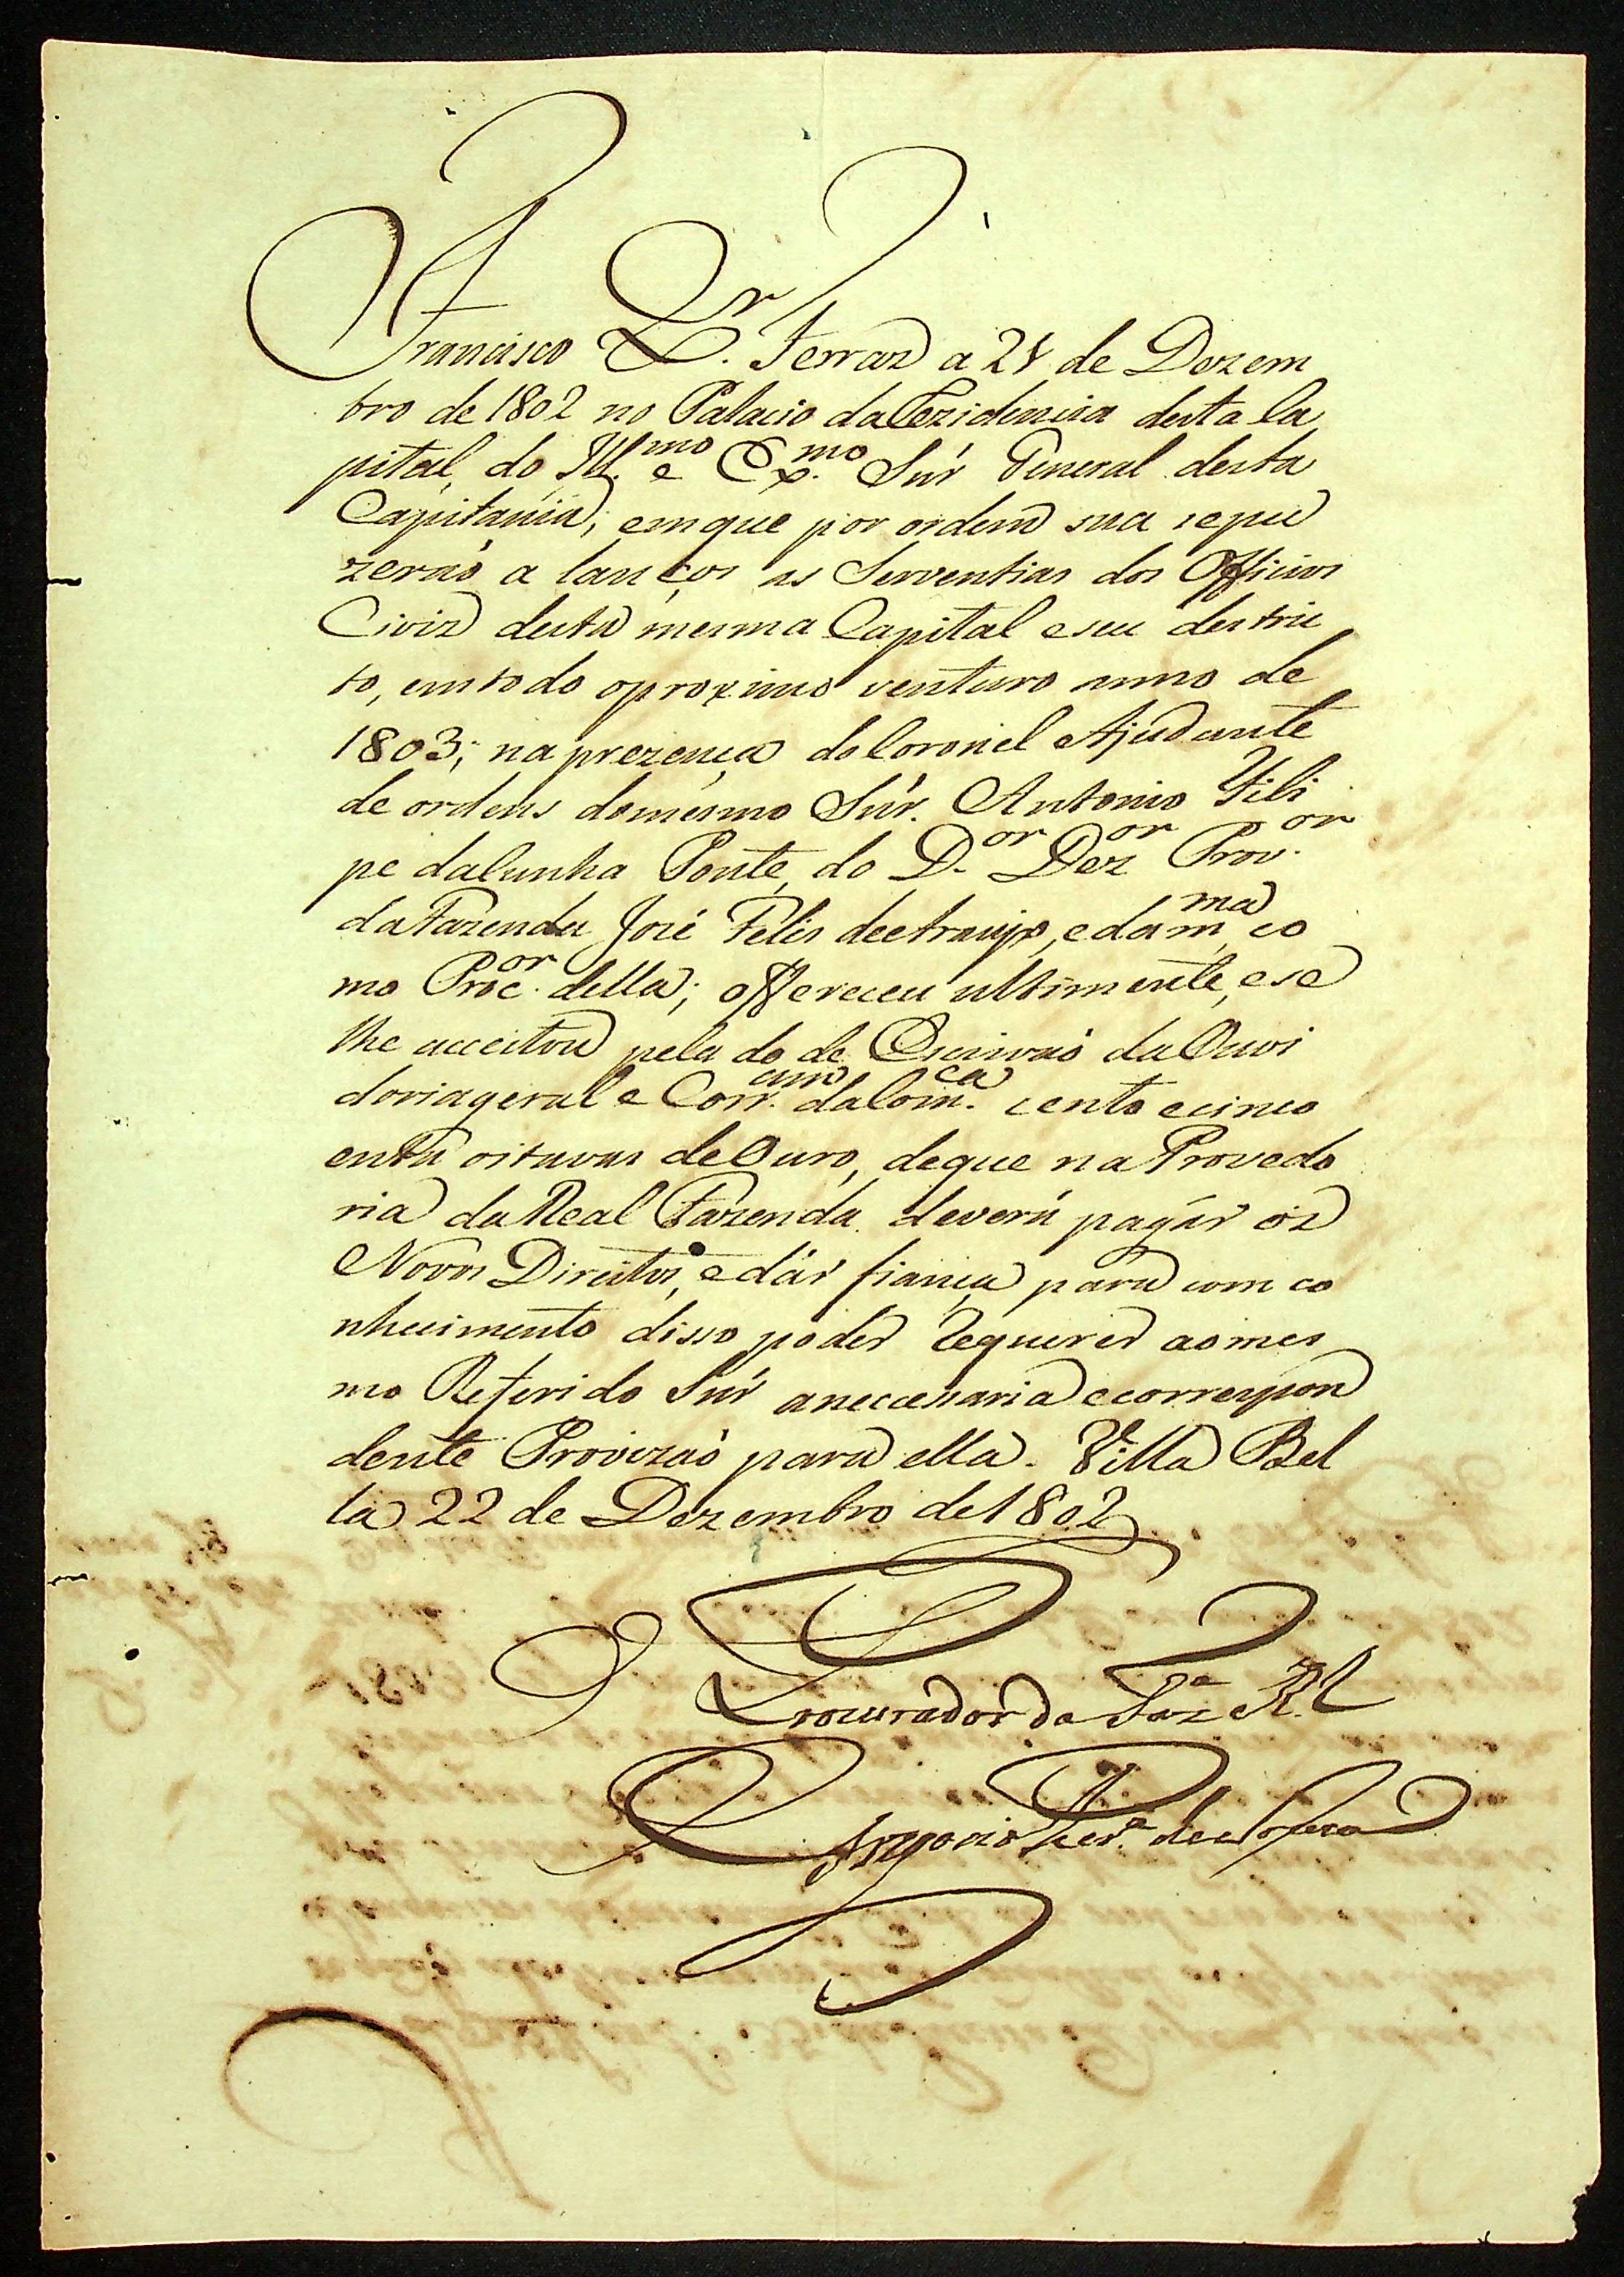 Francisco Xer. Ferraz a 21 de Dezem
bro de 1802 no Palacio da Rezidencia desta Ca
pital, do Ill.mo e Ex.mo Snr' General desta
Capitania; em que por ordem sua se pu
zeraõ a lanços as Serventias dos Officios
Civiz desta mesma Capital e seu destric
to, em todo o proximo venturo anno de
1803; na prezença do Coronel Ajudante
de ordens do mesmo Snr'. Antonio Fili
pe da Cunha Ponte, do D.or Dez.or Prov.or
da Fazenda José Felis de Araujo, e da m.ma co
mo Proc.or della; offereceu ultimente, e se
lhe acceitou pela do de Escrivaõ da Ouvi
doria geral e Corr.am da Com.ca cento e cinco
enta oitavas de Ouro, de que na Provedo
ria da Real Fazenda deverá pagár oz
Novos Direitos, e dár fiança para com co
nhecimento disso poder requerer ao mes
mo Referido Snr' a neccesaria e correspon
dente Provizaõ para ella. Villa Bel
la 22 de Dezembro de 1802
O Procurador da Faz.a R.l
Per.a de